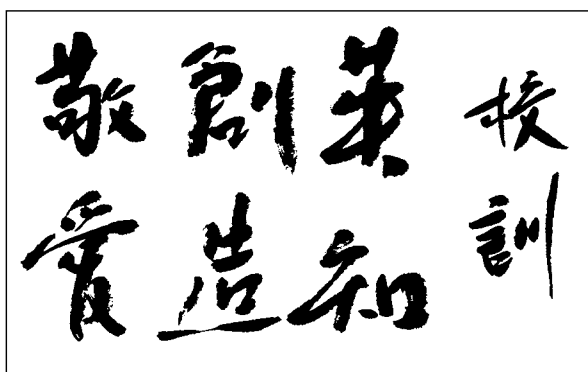 校訓
英知
創造
敬愛